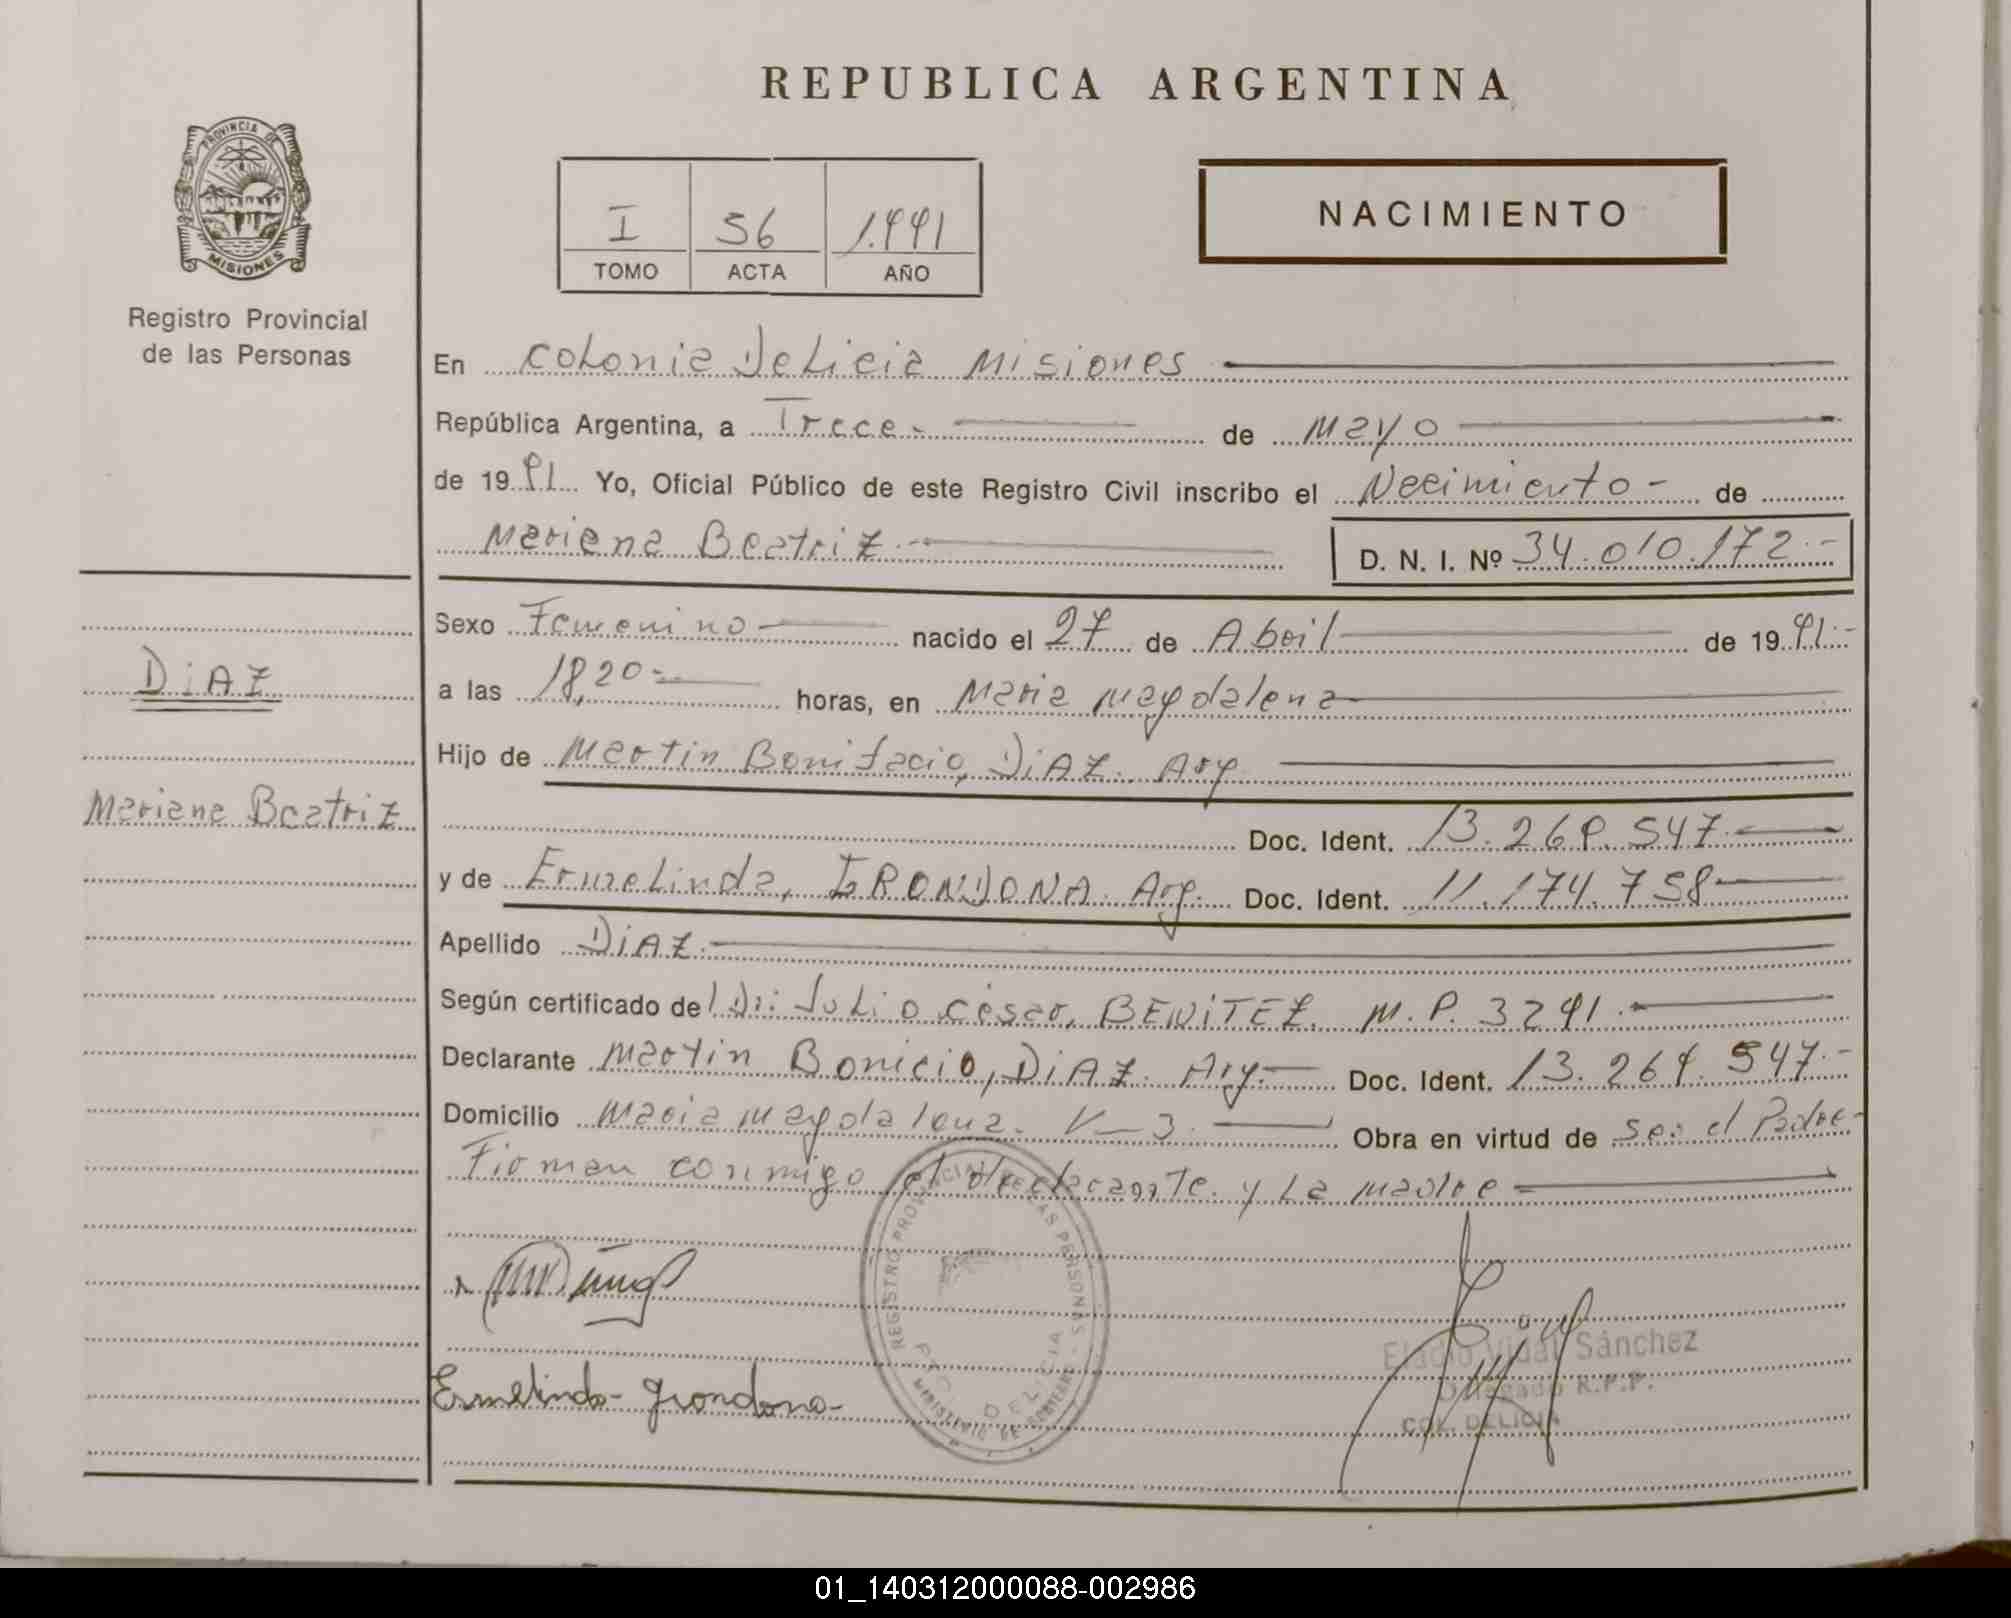 REPUBLICA ARGENTINA
PROVINCIA DE
MISIONES
Registro Provincial
de las Personas
I 56 1.991
TOMO ACTA AÑO
NACIMIENTO
En Colonia Delicia Misiones
República Argentina, a Trece.- de Mayo
de 19 91 Yo, Oficial Público de este Registro Civil inscribo el Nacimiento - de
Mariana Beatriz.- D. N. I. Nº 34.010.172.-
Sexo Femenino nacido el 27 de Abril de 19 91.-
a las 18,20 horas, en Maria Magdalena
Hijo de Martin Bonifacio, DiAZ. Arg.
Doc. Ident. 13.269.547.-
y de Ermelinda, GRONDONA. Arg. Doc. Ident. 11.174.758
Apellido DiAZ.
Según certificado del Dr: Julio César, BENiTEZ. M.P. 3291.-
Declarante Martin Bonicio, DiAZ. Arg.- Doc. Ident. 13.269.547.-
Domicilio Maria Magdalena. V-3. Obra en virtud de ser el Padre-
Firman conmigo el declarante y La madre -
DiAZ
Mariana Beatriz
REGISTRO PROVINCIAL DE LAS PERSONAS - MINISTERIO DE GOBIERNO
DELICIA
Ermelinda Grondona
Eladio Vidal Sánchez
Delegado R.P.P.
COL. DELICIA
01_140312000088-002986